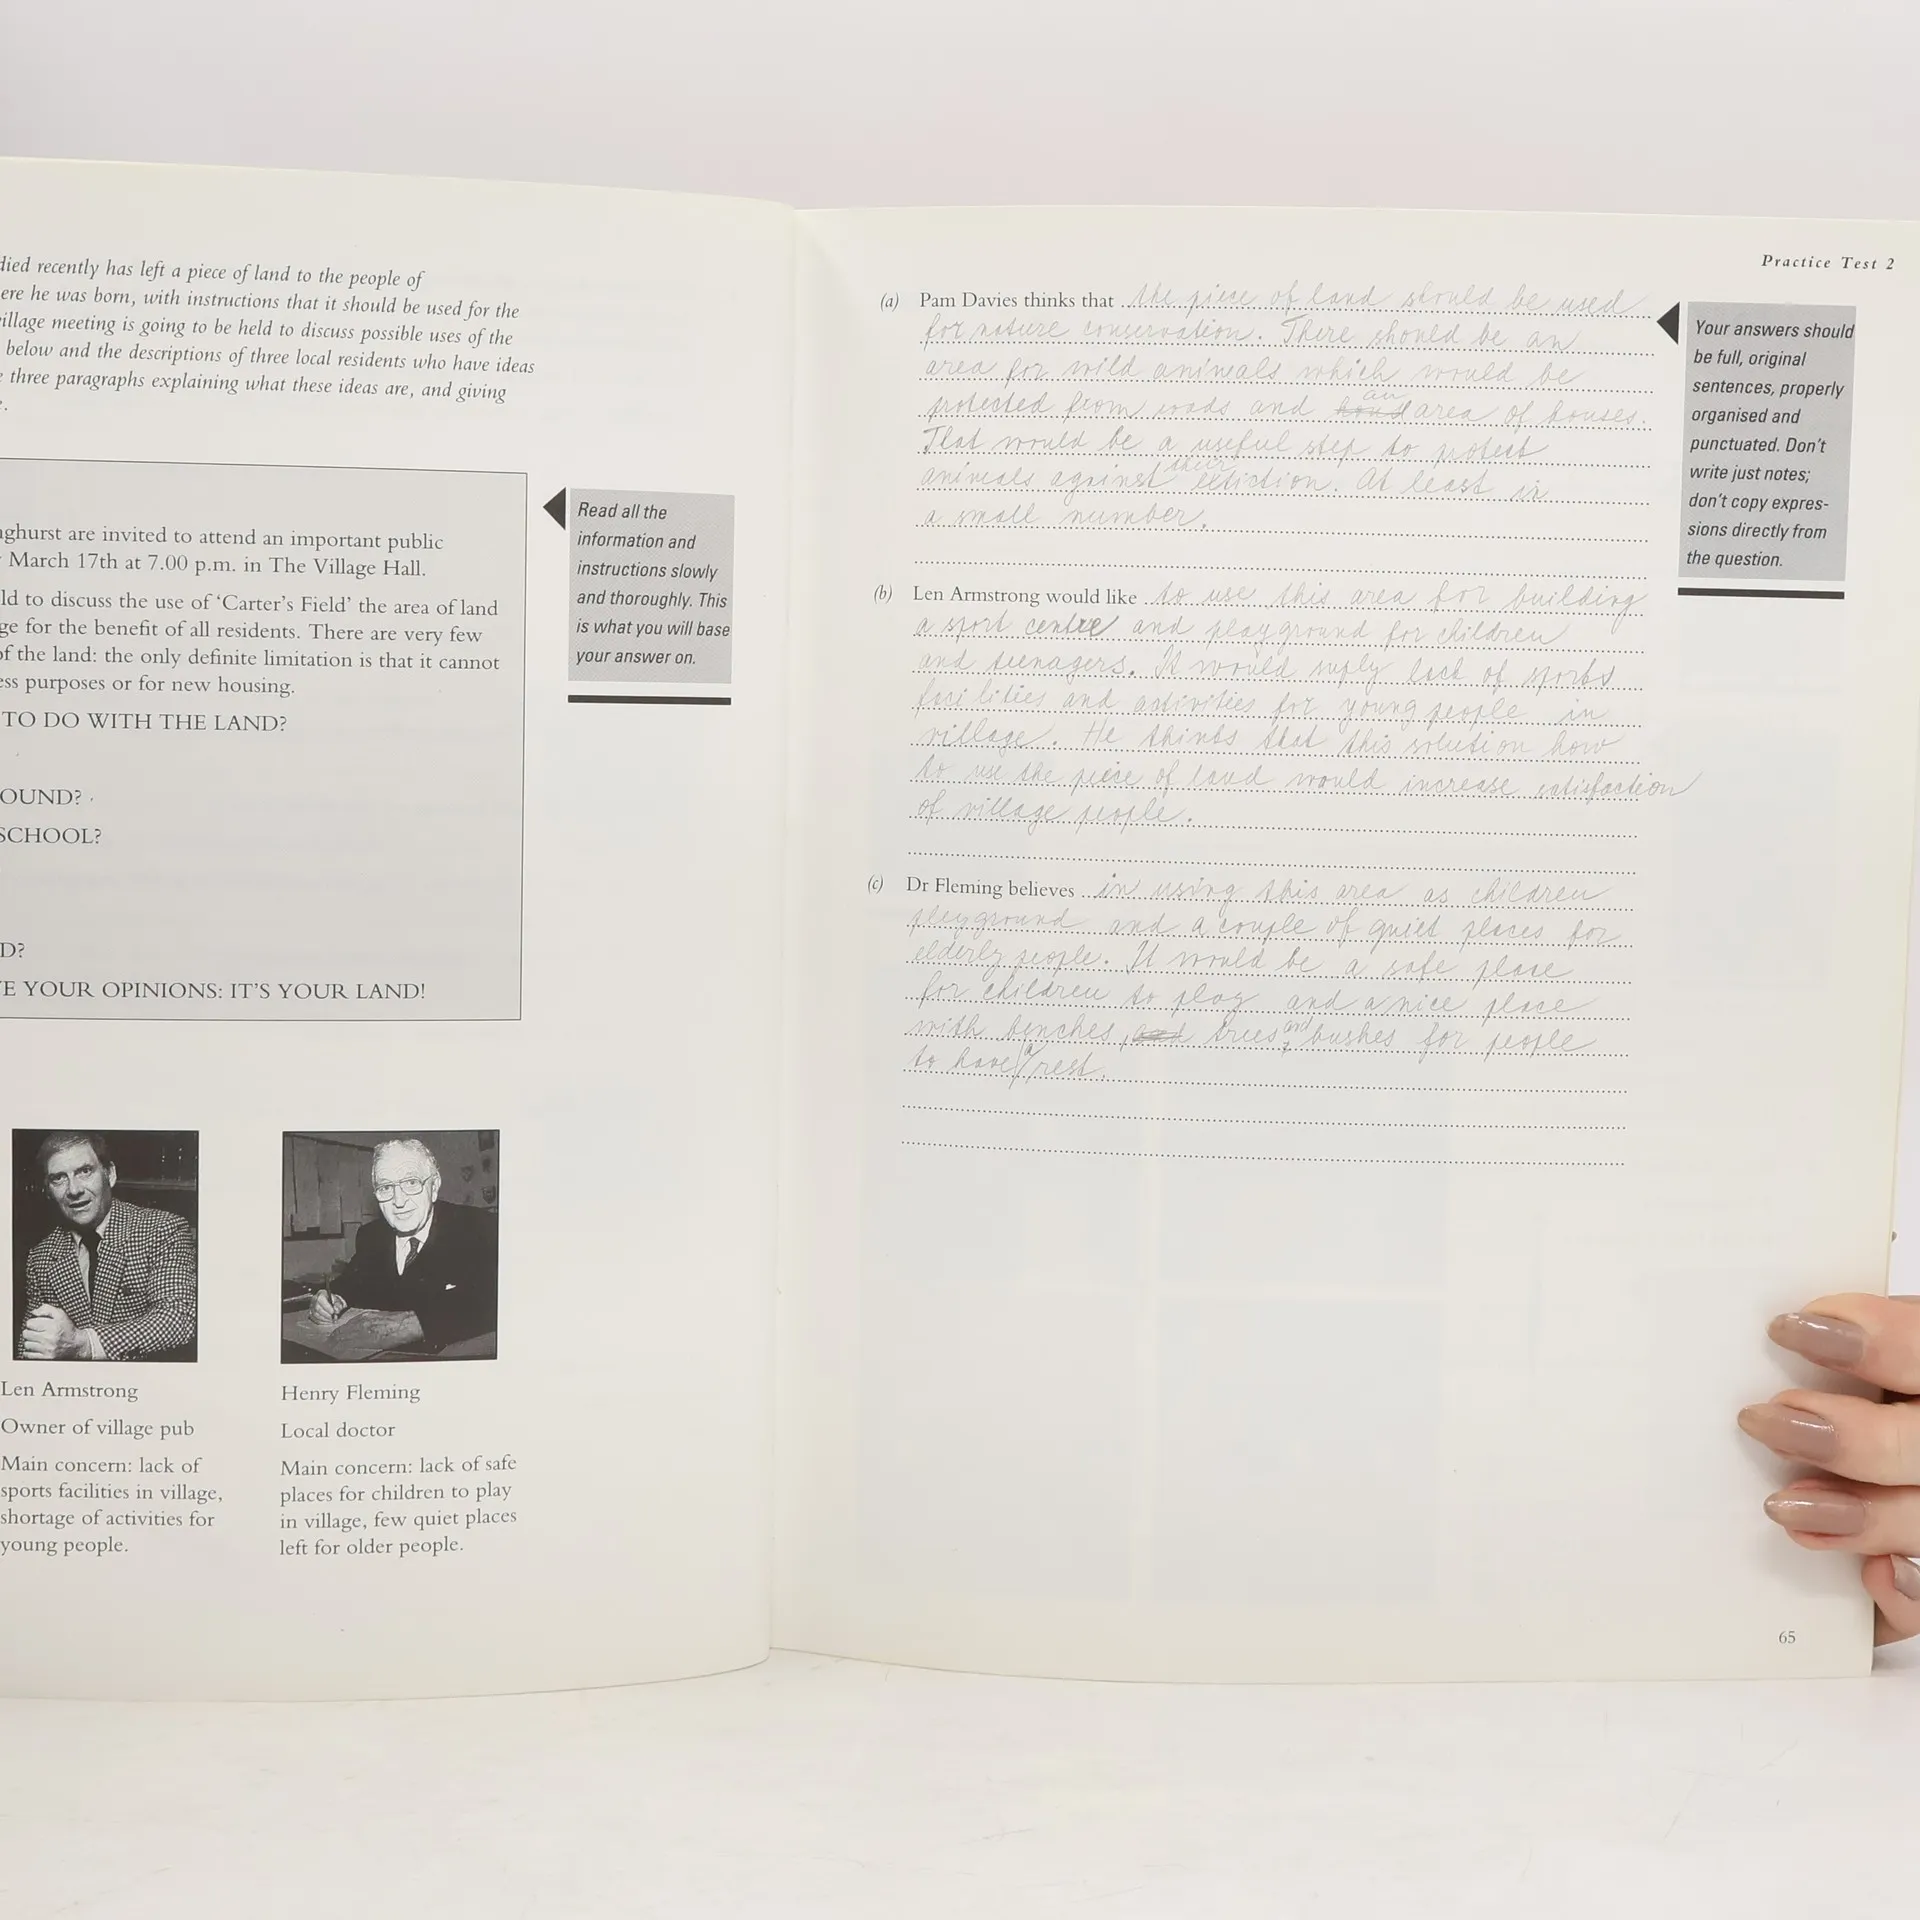 died recently has left a piece of land to the people of
ere he was born, with instructions that it should be used for the
village meeting is going to be held to discuss possible uses of the
below and the descriptions of three local residents who have ideas
three paragraphs explaining what these ideas are, and giving
ghurst are invited to attend an important public
March 17th at 7.00 p.m. in The Village Hall.
ld to discuss the use of ‘Carter’s Field’ the area of land
ge for the benefit of all residents. There are very few
of the land: the only definite limitation is that it cannot
ess purposes or for new housing.
TO DO WITH THE LAND?
OUND?
SCHOOL?
D?
E YOUR OPINIONS: IT’S YOUR LAND!
Read all the
information and
instructions slowly
and thoroughly. This
is what you will base
your answer on.
Len Armstrong
Owner of village pub
Main concern: lack of
sports facilities in village,
shortage of activities for
young people.
Henry Fleming
Local doctor
Main concern: lack of safe
places for children to play
in village, few quiet places
left for older people.
Practice Test 2
(a) Pam Davies thinks that the piece of land should be used
for nature conservation. There should be an
area for wild animals which would be
protected from roads and an area of houses.
That would be a useful step to protect
animals against their extiction. At least in
a small number.
(b) Len Armstrong would like to use this area for building
a sport centre and playground for children
and teenagers. It would suply lack of sports
facilities and activities for young people in
village. He thinks that this solution how
to use the piece of land would increase satisfaction
of village people.
(c) Dr Fleming believes in using this area as children
pleyground and a couple of quiet places for
elderly people. It would be a safe place
for children to play and a nice place
with benches, trees and bushes for people
to have a rest.
Your answers should
be full, original
sentences, properly
organised and
punctuated. Don’t
write just notes;
don’t copy expres-
sions directly from
the question.
65